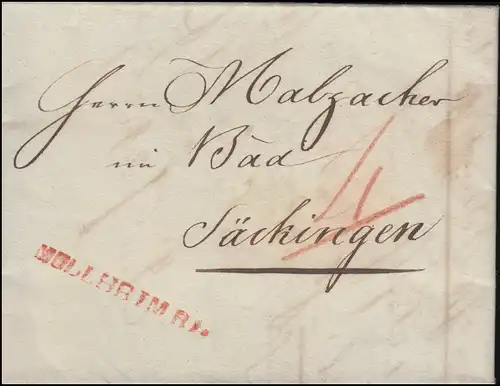 Herrn Malzacher
im Bad
Säckingen
4
MÜLLHEIM R).